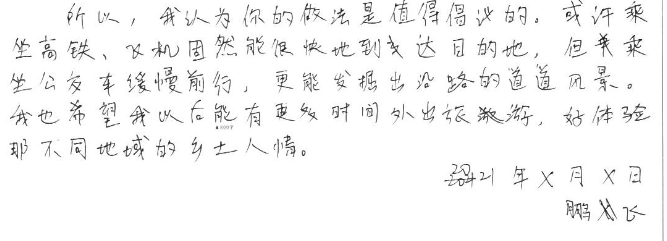 所以，我认为你的做法是值得倡议的。或许乘
坐高铁、飞机固然能很快地到达目的地，但乘
坐公交车缓慢前行，更能发掘出沿路的道道风景。
我也希望我以后能有更多时间外出旅游，好体验
那不同地域的乡土人情。
21年X月X日
鹏飞